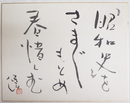 昭和史を
さまざま
まとめ
春惜しむ